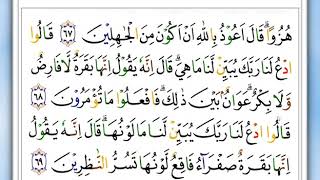 هُزُوًاۗ قَالَ اَعُوْذُ بِاللّٰهِ اَنْ اَكُوْنَ مِنَ الْجٰهِلِيْنَ ٦٧ قَالُوا
ادْعُ لَنَا رَبَّكَ يُبَيِّنْ لَّنَا مَا هِيَۗ قَالَ اِنَّهٗ يَقُوْلُ اِنَّهَا بَقَرَةٌ لَّا فَارِضٌ
وَّلَا بِكْرٌۗ عَوَانٌۢ بَيْنَ ذٰلِكَۗ فَافْعَلُوْا مَا تُؤْمَرُوْنَ ٦٨
قَالُوا ادْعُ لَنَا رَبَّكَ يُبَيِّنْ لَّنَا مَا لَوْنُهَاۗ قَالَ اِنَّهٗ يَقُوْلُ
اِنَّهَا بَقَرَةٌ صَفْرَاۤءُ فَاقِعٌ لَّوْنُهَا تَسُرُّ النّٰظِرِيْنَ ٦٩